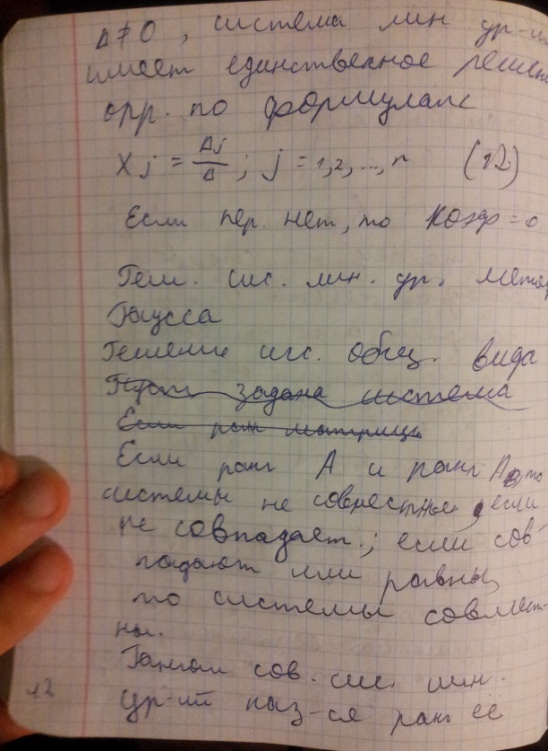 Δ≠0, система лин ур-ий
имеет единственное решен
опр. по формулам
Xj = Δj/Δ; j = 1,2,...,n (12)
Если пер. нет, то коэф = 0
Реш. сис. лин. ур. метод
Гаусса
Решение сис. общ. вида
задана система
Если ранг матрицы
Если ранг A и ранг AB, то
системы не совместные, если
не совпадает.; если сов
падают или равны,
то системы совмест-
ны.
Рангом сов. сис. лин.
ур-ий наз-ся ранг её
12